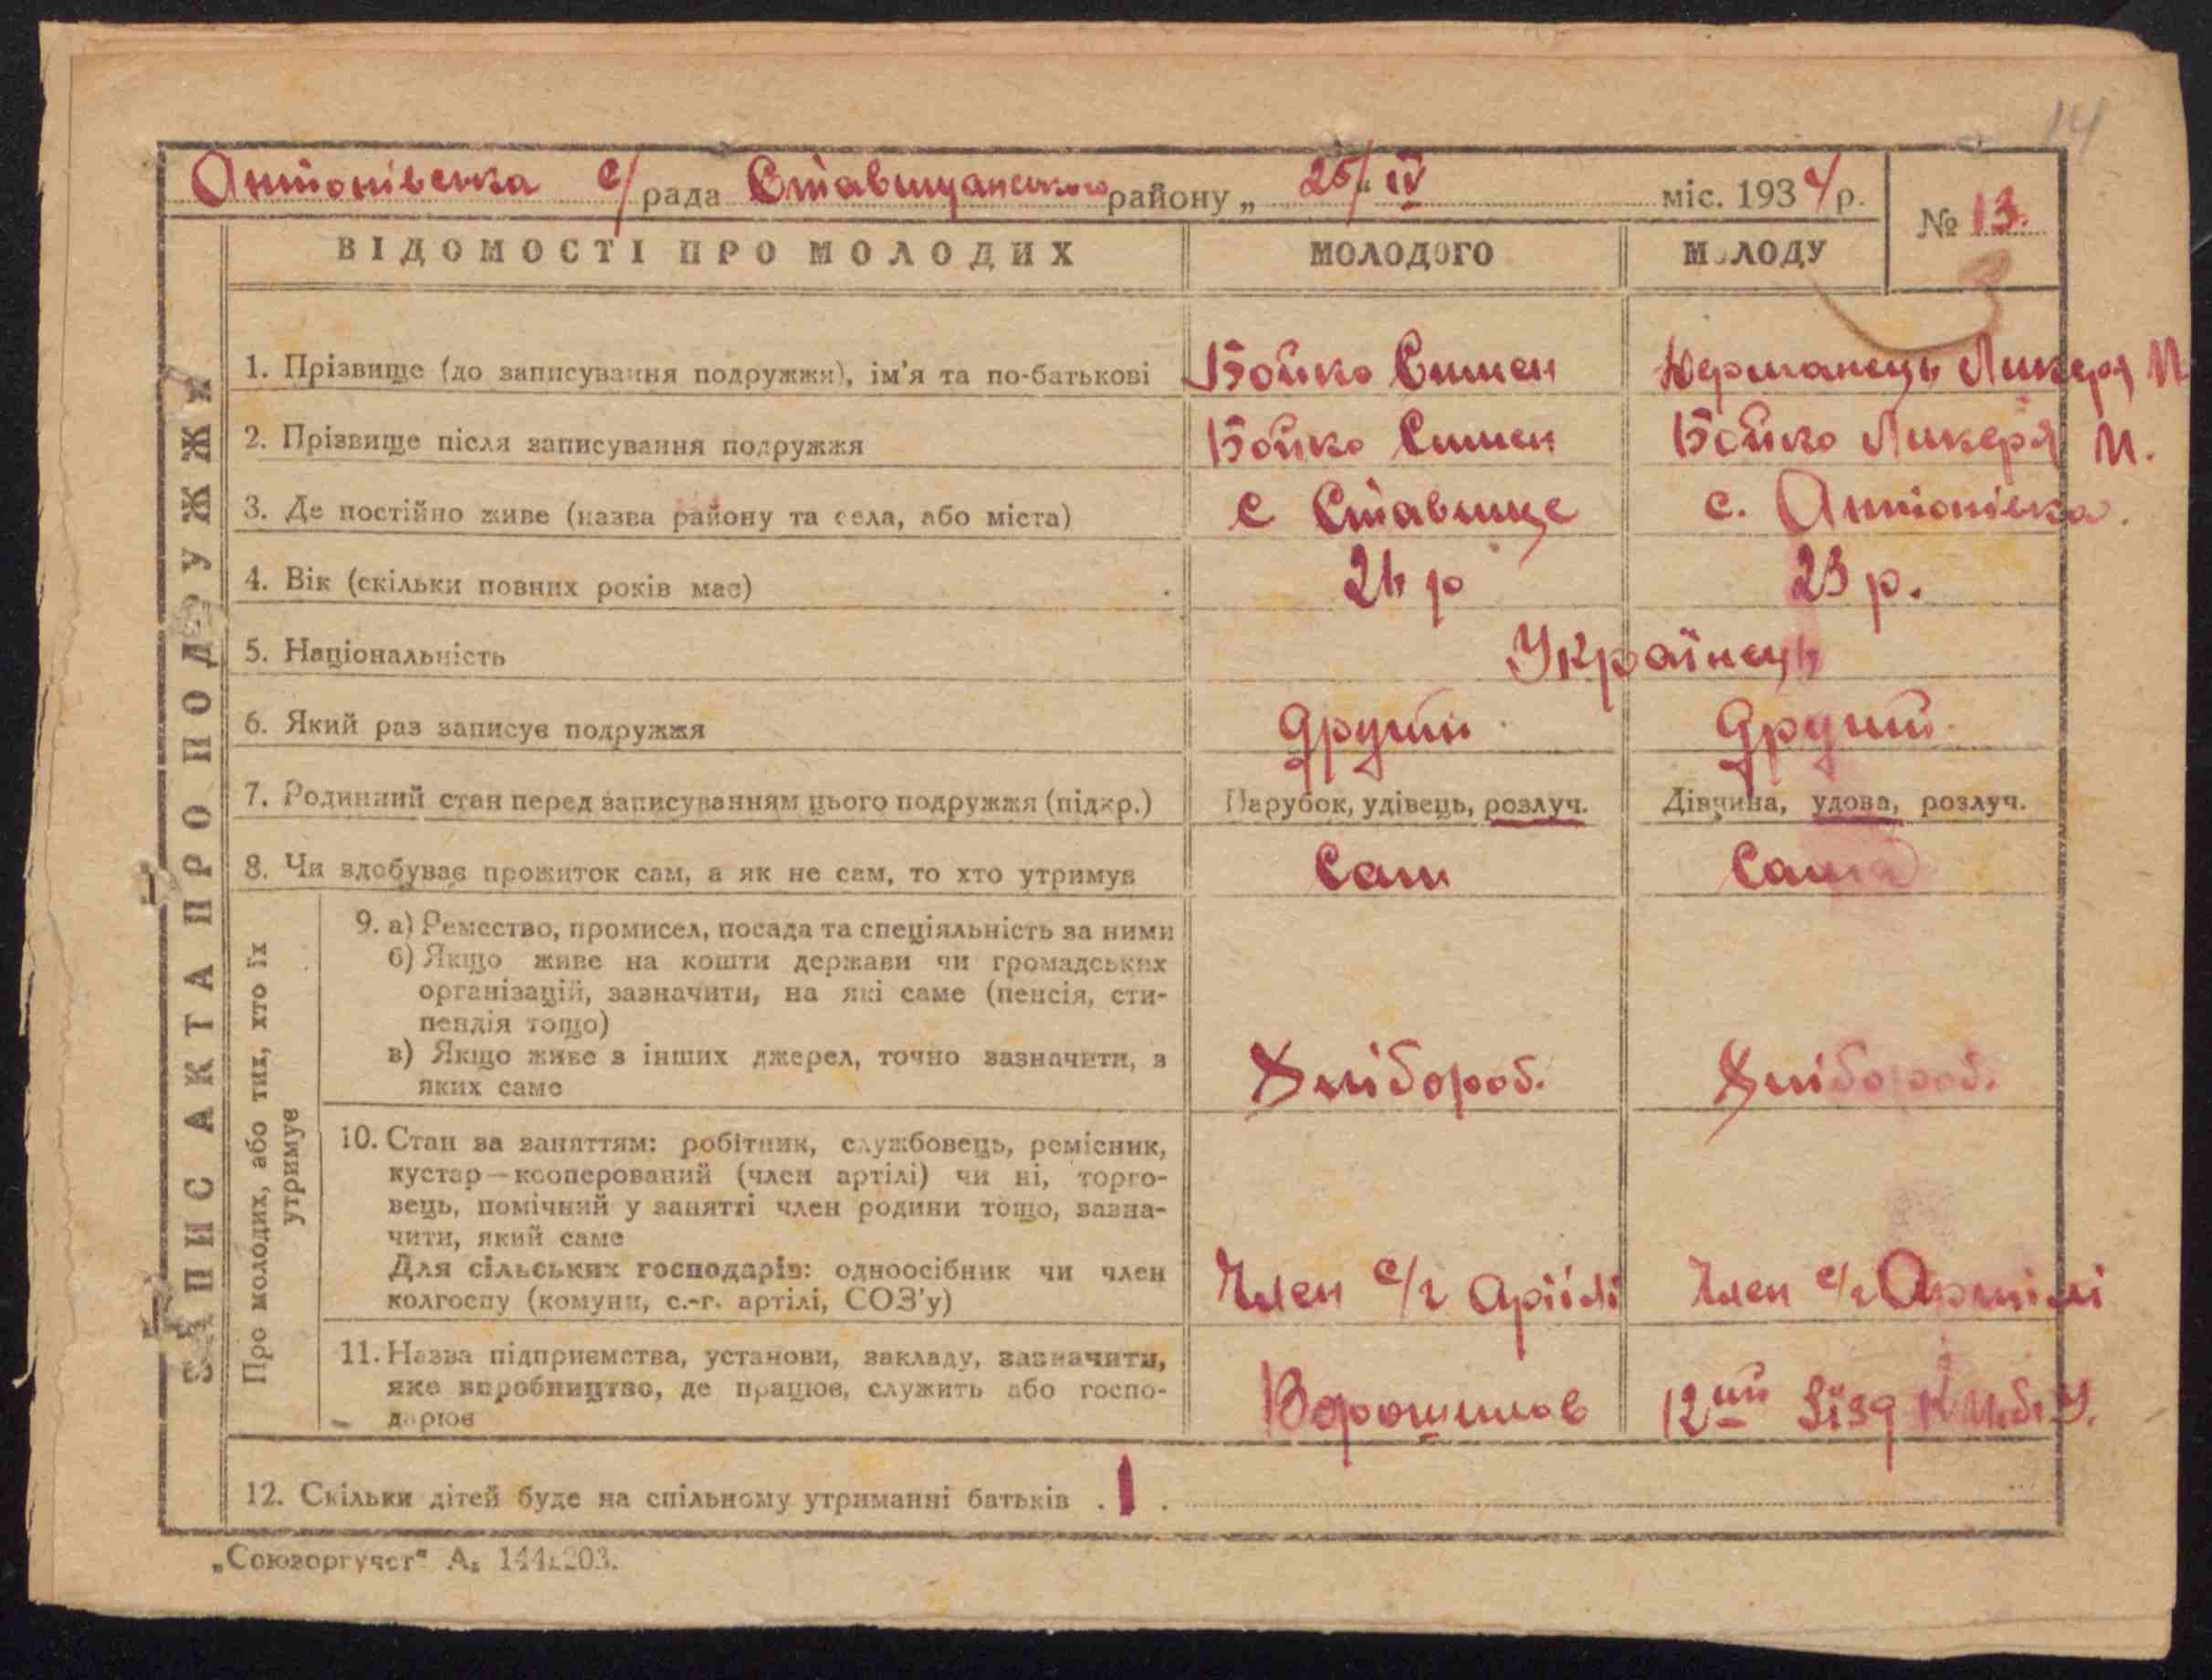 14
Антонівська с/рада Ставищанського району „ 25/" IV міс. 1934 р.
№ 13.
ВІДОМОСТІ ПРО МОЛОДИХ МОЛОДОГО МОЛОДУ
3
ЗАПИС АКТА ПРО ПОДРУЖЖЯ
1. Прізвище (до записування подружжя), ім'я та по-батькові Бойко Симен Ликеря И
2. Прізвище після записування подружжя Бойко Симен Бойко Ликеря И.
3. Де постійно живе (назва району та села, або міста) с Ставище с. Антонівка.
4. Вік (скільки повних років має) 24 р 23 р.
5. Національність Українець
6. Який раз записує подружжя другий другий
7. Родинний стан перед записуванням цього подружжя (підкр.) Парубок, удівець, розлуч. Дівчина, удова, розлуч.
8. Чи здобуває прожиток сам, а як не сам, то хто утримує Сам Сама
Про молодих, або тих, хто їх
утримує
9. а) Ремество, промисел, посада та спеціяльність за ними
б) Якщо живе на кошти держави чи громадських
організацій, зазначити, на які саме (пенсія, сти-
пендія тощо)
в) Якщо живе з інших джерел, точно зазначити, з
яких саме Хлібороб. Хлібороб.
10. Стан за заняттям: робітник, службовець, ремісник,
кустар—кооперований (член артілі) чи ні, торго-
вець, помічний у занятті член родини тощо, зазна-
чити, який саме
Для сільських господарів: одноосібник чи член
колгоспу (комуни, с.-г. артілі, СОЗ'у) Член с/г Артілі Член с/г Артілі
11. Назва підприємства, установи, закладу, зазначити,
яке виробництво, де працює, служить або госпо-
дарює Ворошилов 12ий Зїзд
12. Скільки дітей буде на спільному утриманні батьків . 1 .
„Союзоргучет"